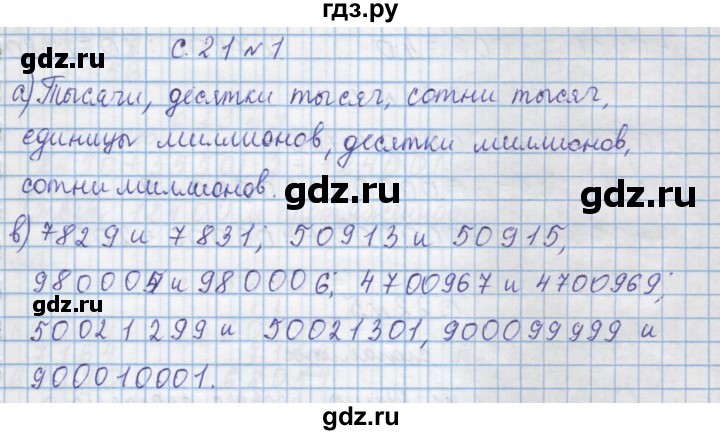 гдз.ру
с. 21 № 1
а) Тысячи, десятки тысяч, сотни тысяч,
gdz.ru
единицы миллионов, десятки миллионов,
сотни миллионов.
gdz.ru
gdz.ru
в) 7829 и 7831; 50913 и 50915,
980004 и 980006; 4700967 и 4700969;
gdz.ru
gdz.ru
50021299 и 50021301, 900099999 и
900010001.
gdz.ru
gdz.ru